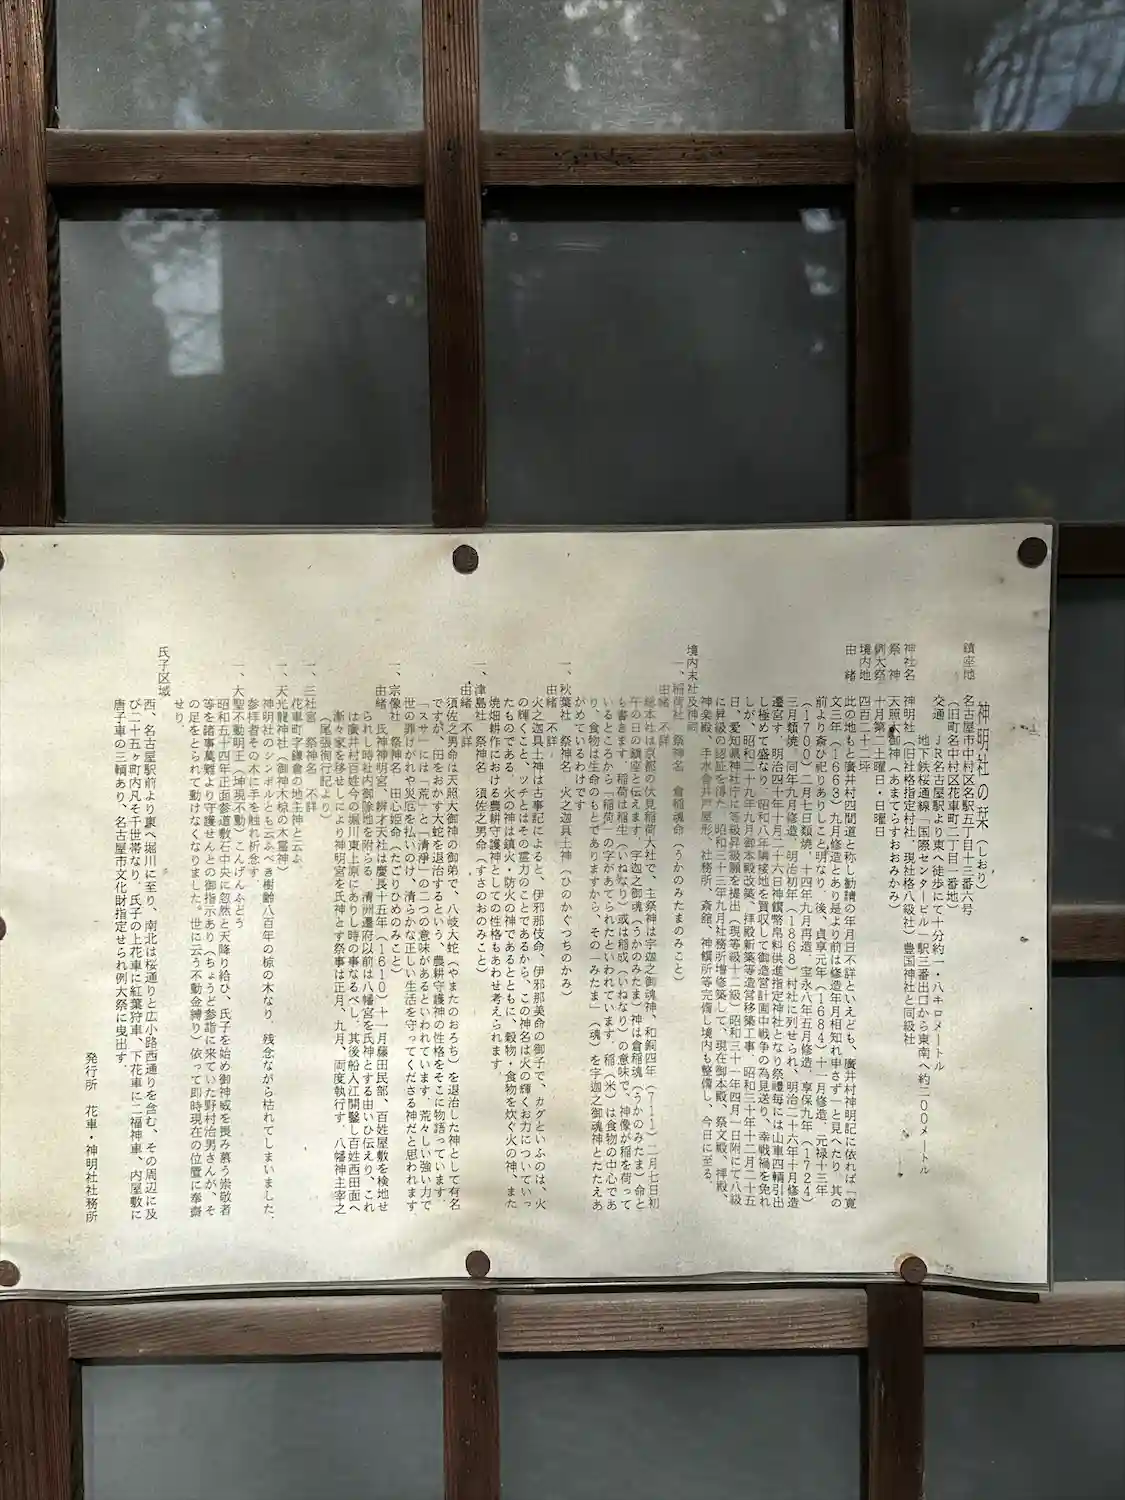 神明社の栞（しおり）
鎮座地　名古屋市中村区名駅五丁目十三番六号
（旧町名中村区花車町二丁目一番地）
交通　ＪＲ名古屋駅より東へ徒歩にて十分約一・八キロメートル
地下鉄桜通線「国際センタービル」駅三番出口から東南へ約二〇〇メートル
神社名　神明社（旧社格指定村社、現社格八級社）豊国神社と同級社
祭　神　天照大御神（あまてらすおおみかみ）
例大祭　十月第二土曜日・日曜日
境内地　四百二十二坪
由　緒　此の地もと廣井村四間道と称し勧請の年月日不詳といえども、廣井村神明記に依れば「寛
文三年（１６６３）九月修造とあり是より前は修造年月相知れ申さず」と見へたり、其の
前より斎ひ祀りありしこと明なり、後、貞享元年（１６８４）十一月修造、元禄十三年
（１７００）二月七日類焼、十四年九月再造、宝永八年五月修造、享保九年（１７２４）
三月類焼、同年九月修造、明治初年（１８６８）村社に列せられ、明治二十六年十月修造
遷宮す、明治四十年十月二十六日神饌幣帛料供進指定神社となり祭禮毎には山車四輌引出
し極めて盛なり、昭和八年隣接地を買収して御造営計画中戦争の為見送り、幸戦禍を免れ
しが、昭和二十九年九月御本殿改築、拝殿新築等造営移築工事、昭和三十年十二月二十五
日、愛知県神社庁に等級昇級願を提出（現等級十二級）昭和三十一年四月一日附にて八級
に昇級の認証を得た　昭和三十三年九月社務所増修築して、現在御本殿、祭文殿、拝殿、
神楽殿、手水舎井戸屋形、社務所、斎館、神饌所等完備し境内も整備し、今日に至る、
境内末社及神祠
一、稲荷社　祭神名　倉稲魂命（うかのみたまのみこと）
由緒　不詳
総本社は京都の伏見稲荷大社で、主祭神は宇迦之御魂神、和銅四年（７１１）二月七日初
午の日の鎮座と伝えます、宇迦之御魂（うかのみたま）神は倉稲魂（うかのみたま）命と
も書きます、稲荷は稲生（いねなり）或は稲成（いねなり）の意味で、神像が稲を荷って
いるところから「稲荷」の字があてられたといわれています、稲（米）は食物の中心であ
り、食物は生命のもとでありますから、その「みたま」（魂）を宇迦之御魂神とたたえあ
がめているわけです
一、秋葉社　祭神名　火之迦具土神（ひのかぐつちのかみ）
由緒　不詳
火之迦具土神は古事記によると、伊邪那伎命、伊邪那美命の御子で、カグといふのは、火
の輝くこと、ツチとはその霊力のことであるから、この神名は火の輝くお力についていっ
たものである、火の神は鎮火・防火の神であるとともに、穀物・食物を炊ぐ火の神、また
焼畑耕作における農耕守護神としての性格もあわせ考えられます、
一、津島社　祭神名　須佐之男命（すさのおのみこと）
由緒　不詳
須佐之男命は天照大御神の御弟で、八岐大蛇（やまたのおろち）を退治した神として有名
ですが、田をおかす大蛇を退治するという、農耕守護神の性格をそこに物語っています、
「スサ」には「荒」と「清浄」の二つの意味があるといわれています、荒々しい強い力で
世の罪けがれや災厄を払いのけ、清らかな正しい生活を守ってくださる神だと思われます
一、宗像社　祭神名　田心姫命（たごりひめのみこと）
由緒　氏神神明宮、辨才天社は慶長十五年（１６１０）十一月藤田民部、百姓屋敷を検地せ
られし時社内御除地を附らる、清洲遷府以前は八幡宮を氏神とする由いひ伝えり、これ
は廣井村百姓今の堀川東上原にありし時の事なるべし、其後船入江開鑿し百姓西田面へ
漸々家を移せしにより神明宮を氏神とす祭事は正月、九月、両度執行す、八幡神主宰之
（尾張徇行記より）
一、三社宮　祭神名　不詳
花車町字鎌倉の地主神と云ふ、
一、天光龍神社（御神木椋の木霊神）
神明社のシンボルとも云ふべき樹齢八百年の椋の木なり、残念ながら枯れてしまいました、
参拝者その木に手を触れ祈念す、
一、大聖不動明王（坤現不動）こんげんふどう
昭和五十四年正面参道敷石中央に忽然と天降り給ひ、氏子を始め御神威を畏み慕う崇敬者
等を諸事萬難より守護せんとの御指示あり（ちょうど参詣に来ていた野村治男さんが、そ
の足をとられて動けなくなりました。世に云う不動金縛り）依って即時現在の位置に奉齋
せり、
氏子区域
西、名古屋駅前より東へ堀川に至り、南北は桜通りと広小路西通りを含む、その周辺に及
び二十五ヶ町内凡そ千世帯なり、氏子の上花車に紅葉狩車、下花車に二福神車、内屋敷に
唐子車の三輌あり、名古屋市文化財指定せられ例大祭に曳出す、
発行所　花車・神明社社務所